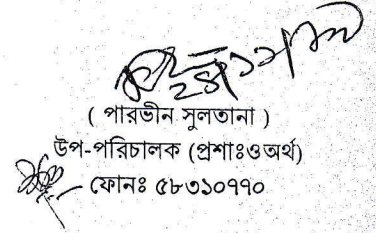 ( পারভীন সুলতানা )
উপ-পরিচালক (প্রশাঃওঅর্থ)
ফোনঃ ৫৮৩১০৭৭০